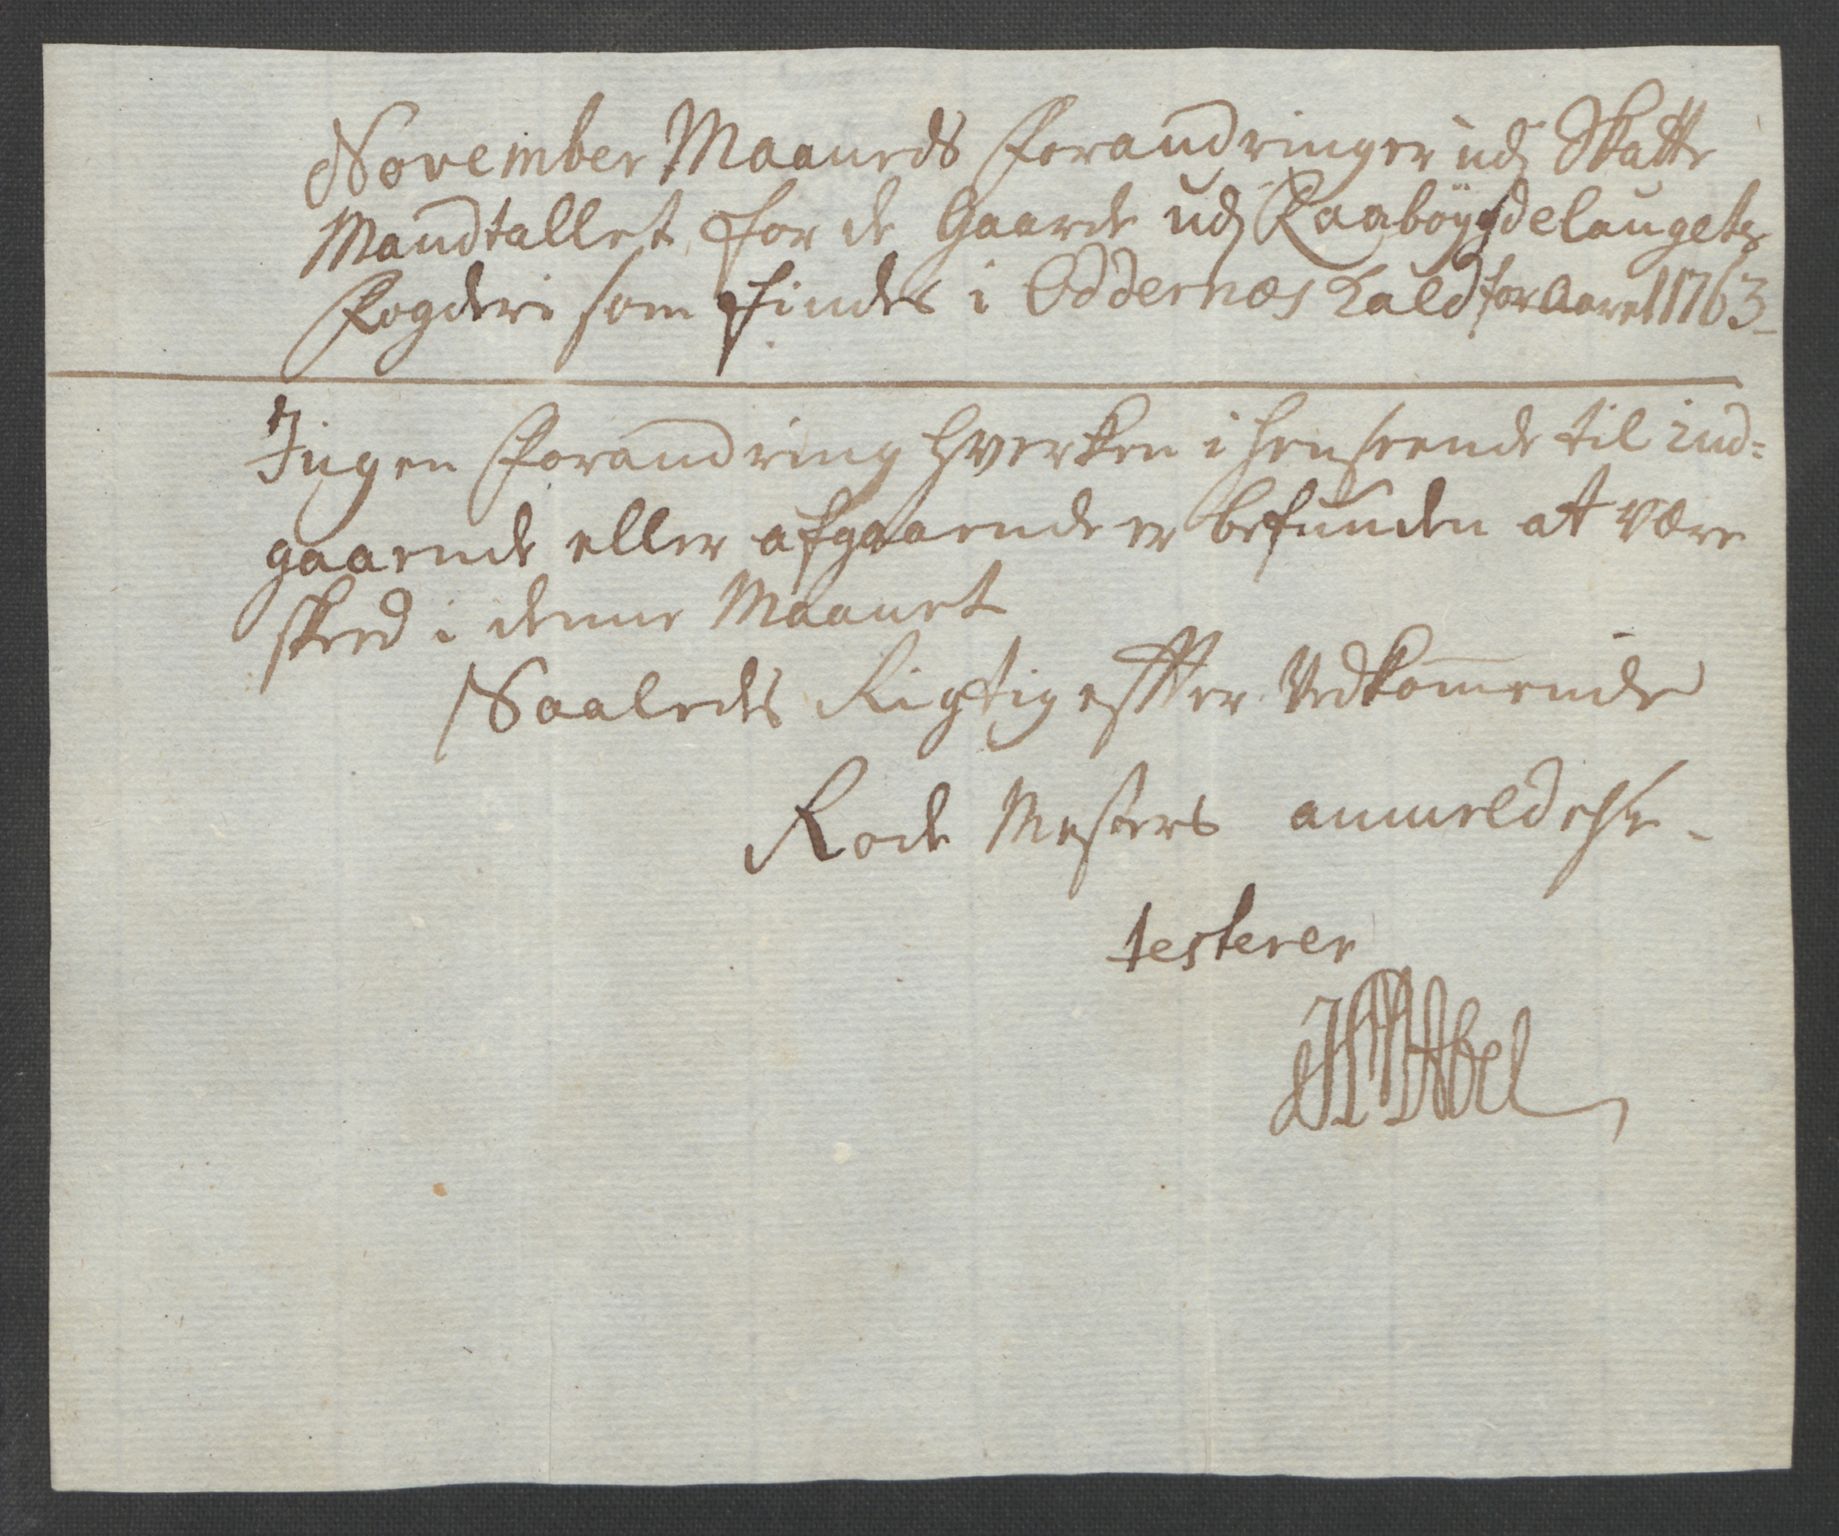 November Maaneds Forandringer udj Skatte
Mandtallet for de Gaarde udj Raabøygdelaugets
Fogderi som findes i Oddernæs Kald for Aaret 1763
Ingen Forandring hverken i henseende til ind=
gaaende eller afgaaende er befunden at være
skeed i denne Maanet
Saaledes Rigtig effter Vedkommende
Rode Mesters anmeldelse
testerer
Abel